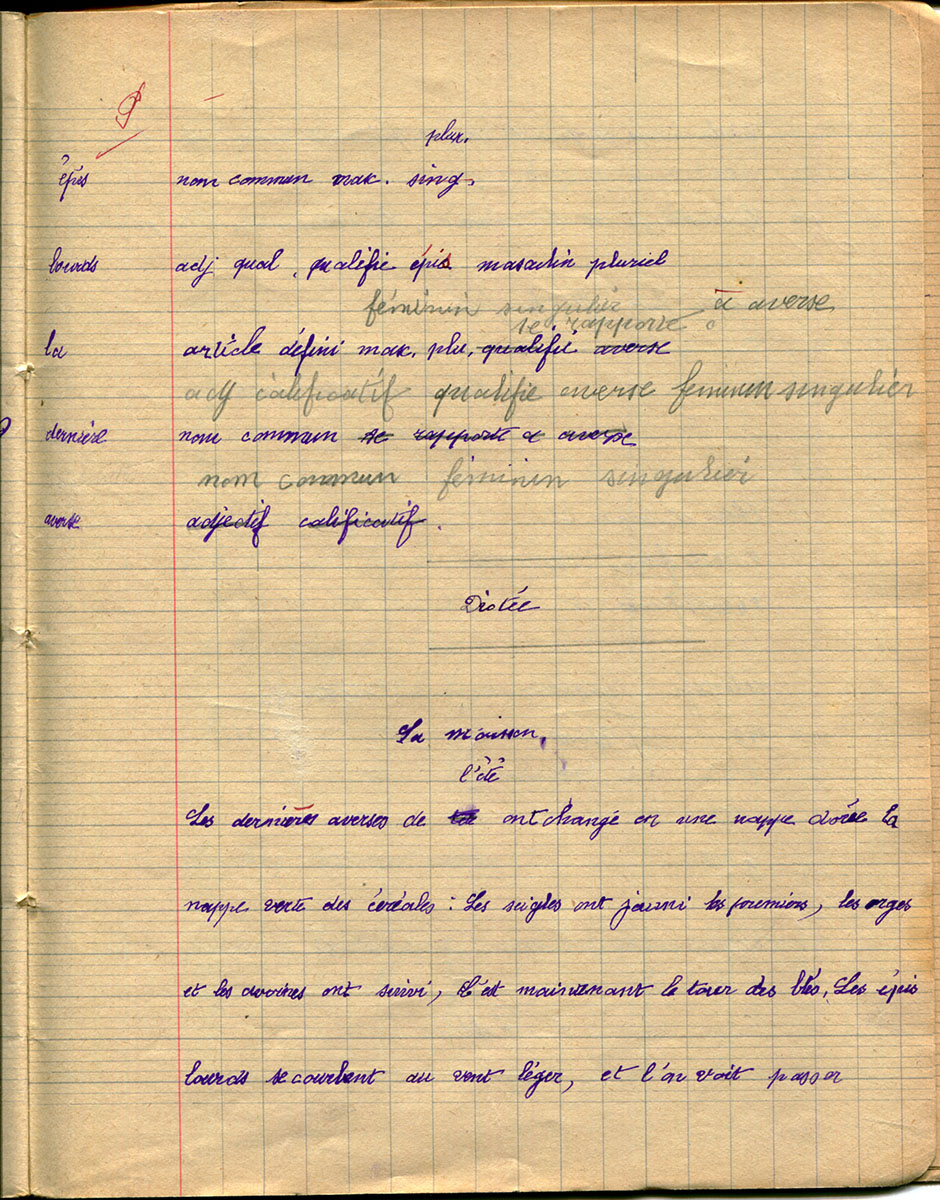 plur.
épis nom commun mak. sing.
lourds adj qual, qualifie épis masculin pluriel
féminin singulier
se rapporte à averse
la article défini mak, plu, qualifie averse
adj calificatif qualifie averse feminin singulier
dernière nom commun se rapporte a averse
nom commun féminin singulier
averse adjectif calificatif.
Dictée
La moisson,
l'été
Les dernières averses de ont changé en une nappe dorée la
nappe verte des céréales : Les seigles ont jauni les premiers, les orges
et les avoines ont suivi, C'est maintenant le tour des blés, Les épis
lourds se courbent au vent léger, et l'on voit passer